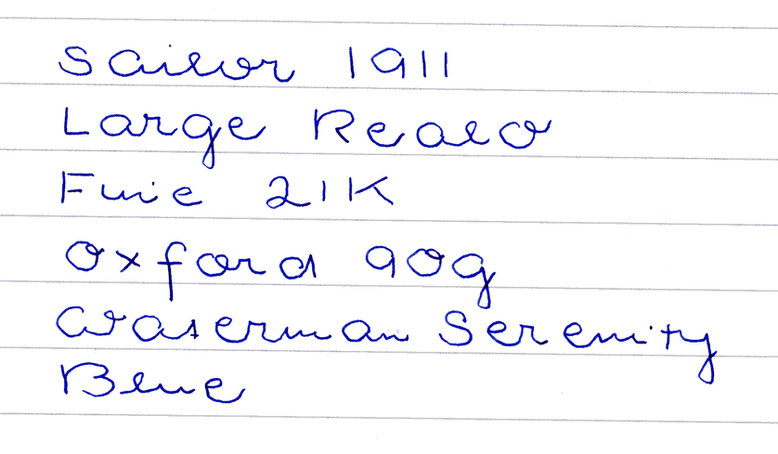 Sailor 1911
Large Realo
Fine 21K
Oxford 90g
Waterman Serenity
Blue